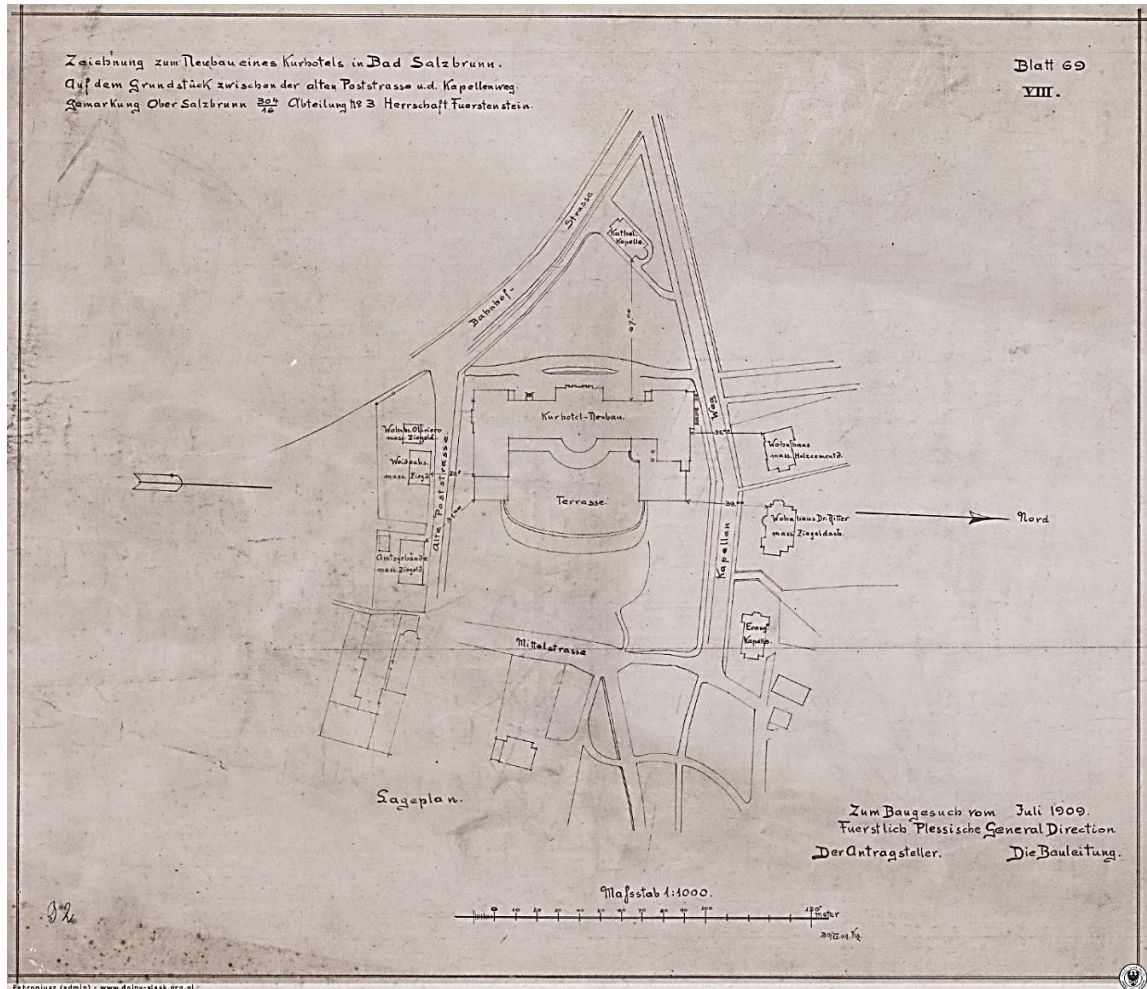 Zeichnung zum Neubau eines Kurhotels in Bad Salzbrunn.
Auf dem Grundstück zwischen der alten Poststrasse u.d. Kapellenweg.
Gemarkung Ober Salzbrunn 304/16 Abteilung No 3 Herrschaft Fuerstenstein.
Blatt 69
VIII.
Bahnhof-
Strasse
Kathol.
Kapelle.
Kurhotel-Neubau.
Terrasse.
Alte Poststrasse
Weg
Kapellen
Wohnhaus
mass. Holzcementd.
Wohnhaus Dr. Ritter
mass. Ziegeldach.
Nord
mass. Ziegeld.
mass. Ziegd.
Amtsgebäude
mass. Ziegeld.
Evang.
Kapelle.
Mittelstrasse
Lageplan.
Zum Baugesuch vom Juli 1909.
Fuerstlich Plessische General Direction
Der Antragsteller. Die Bauleitung.
Maßstab 1:1000.
0 10 20 30 40 50 60 70 80 90 100 150
meter
Petroniusz (admin) - www.dolny-slask.org.pl